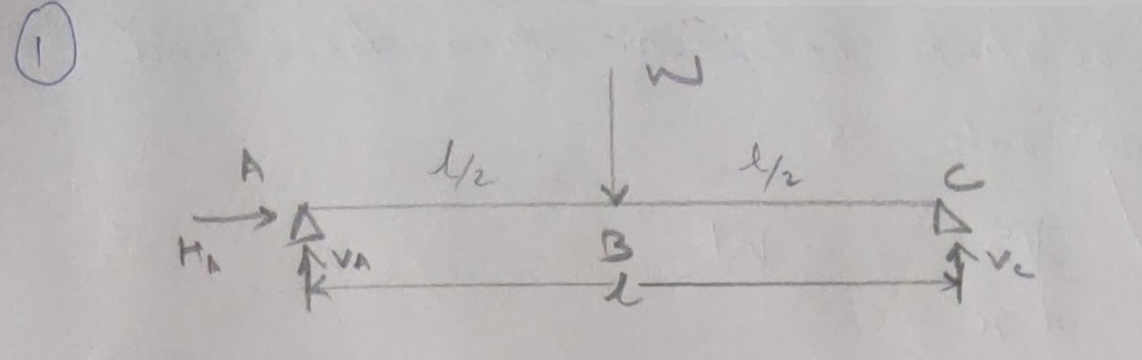 1
W
A l/2 l/2 C
HA VA B VC
l